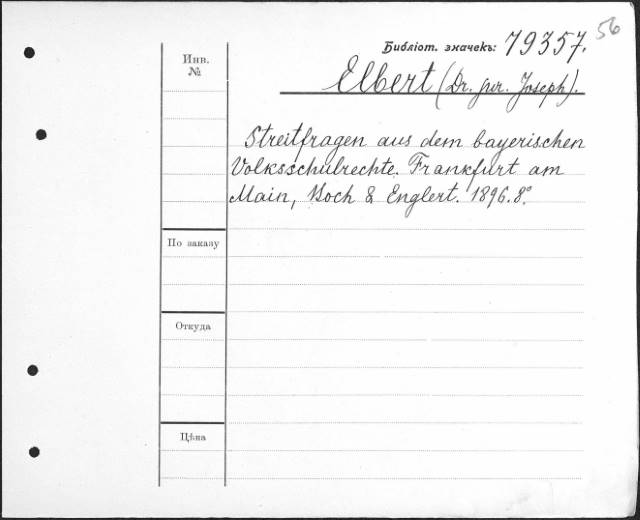 56
Библіот. значекъ: 79357.
Инв.
№
Elbert (Dr. jur. Joseph).
Streitfragen aus dem bayerischen
Volksschulrechte. Frankfurt am
Main, Koch & Englert. 1896. 8°
По заказу
Откуда
Цѣна